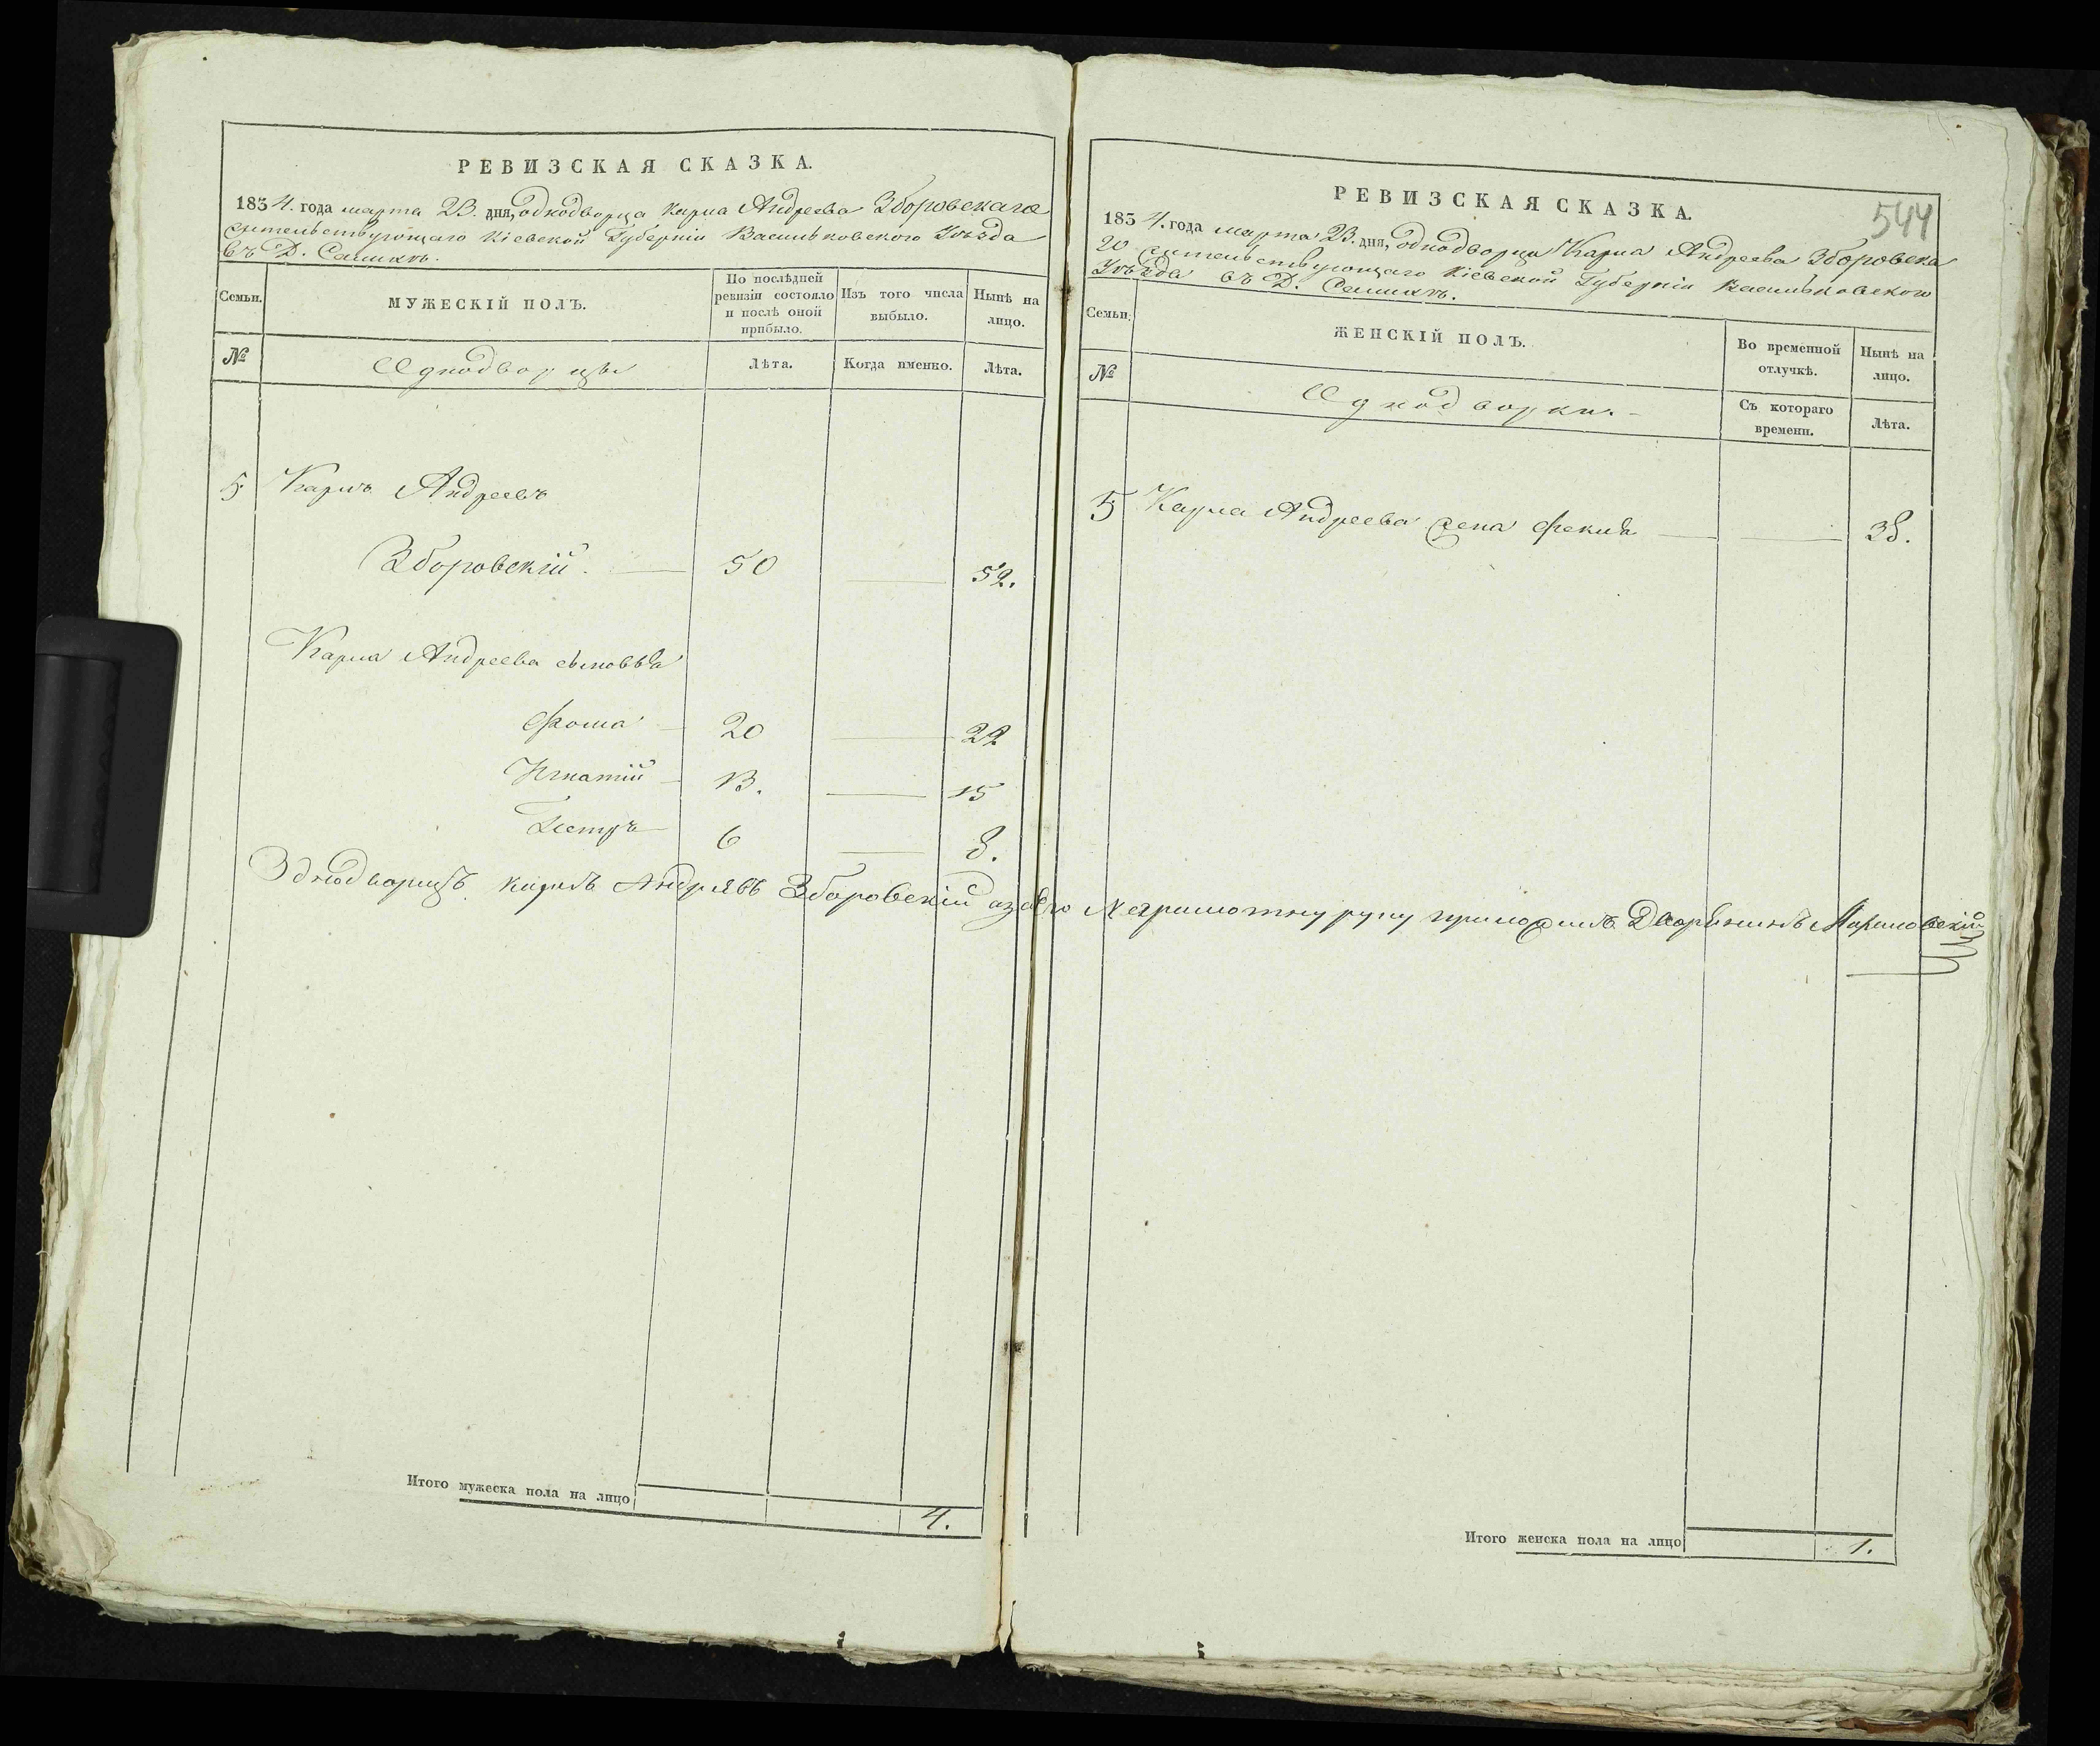 РЕВИЗСКАЯ СКАЗКА.
1834. года марта 23. дня, однодворца Карла Андреева Зборовскаго
жительствующаго Кіевской Губерніи Васильковского Уѣзда
въ Д.
Семьи.
МУЖЕСКІЙ ПОЛЪ.
По послѣдней ревизіи состояло и послѣ оной прибыло.
Изъ того числа выбыло.
Нынѣ на лицо.
№
Однодворцы
Лѣта.
Когда именно.
Лѣта.
5 Карлъ Андреевъ
Зборовскій. 50 52.
Карла Андреева сыновья
Фома 20 22
Игнатій 13. 15
Петръ 6 8.
Итого мужеска пола на лицо 4.
544
РЕВИЗСКАЯ СКАЗКА.
1834. года марта 23. дня, однодворца Карла Андреева Зборовска
го жительствующаго Кіевской Губерніи Васильковского
Уѣзда въ Д.
Семьи.
ЖЕНСКІЙ ПОЛЪ.
Во временной отлучкѣ.
Нынѣ на лицо.
№
Однодворки.
Съ котораго времени.
Лѣта.
5 Карла Андреева жена 38.
Зднодворецъ карлъ Андрѣевъ Зборовскій аза его неграмотну руку приложилъ Дворенинъ
Итого женска пола на лицо 1.